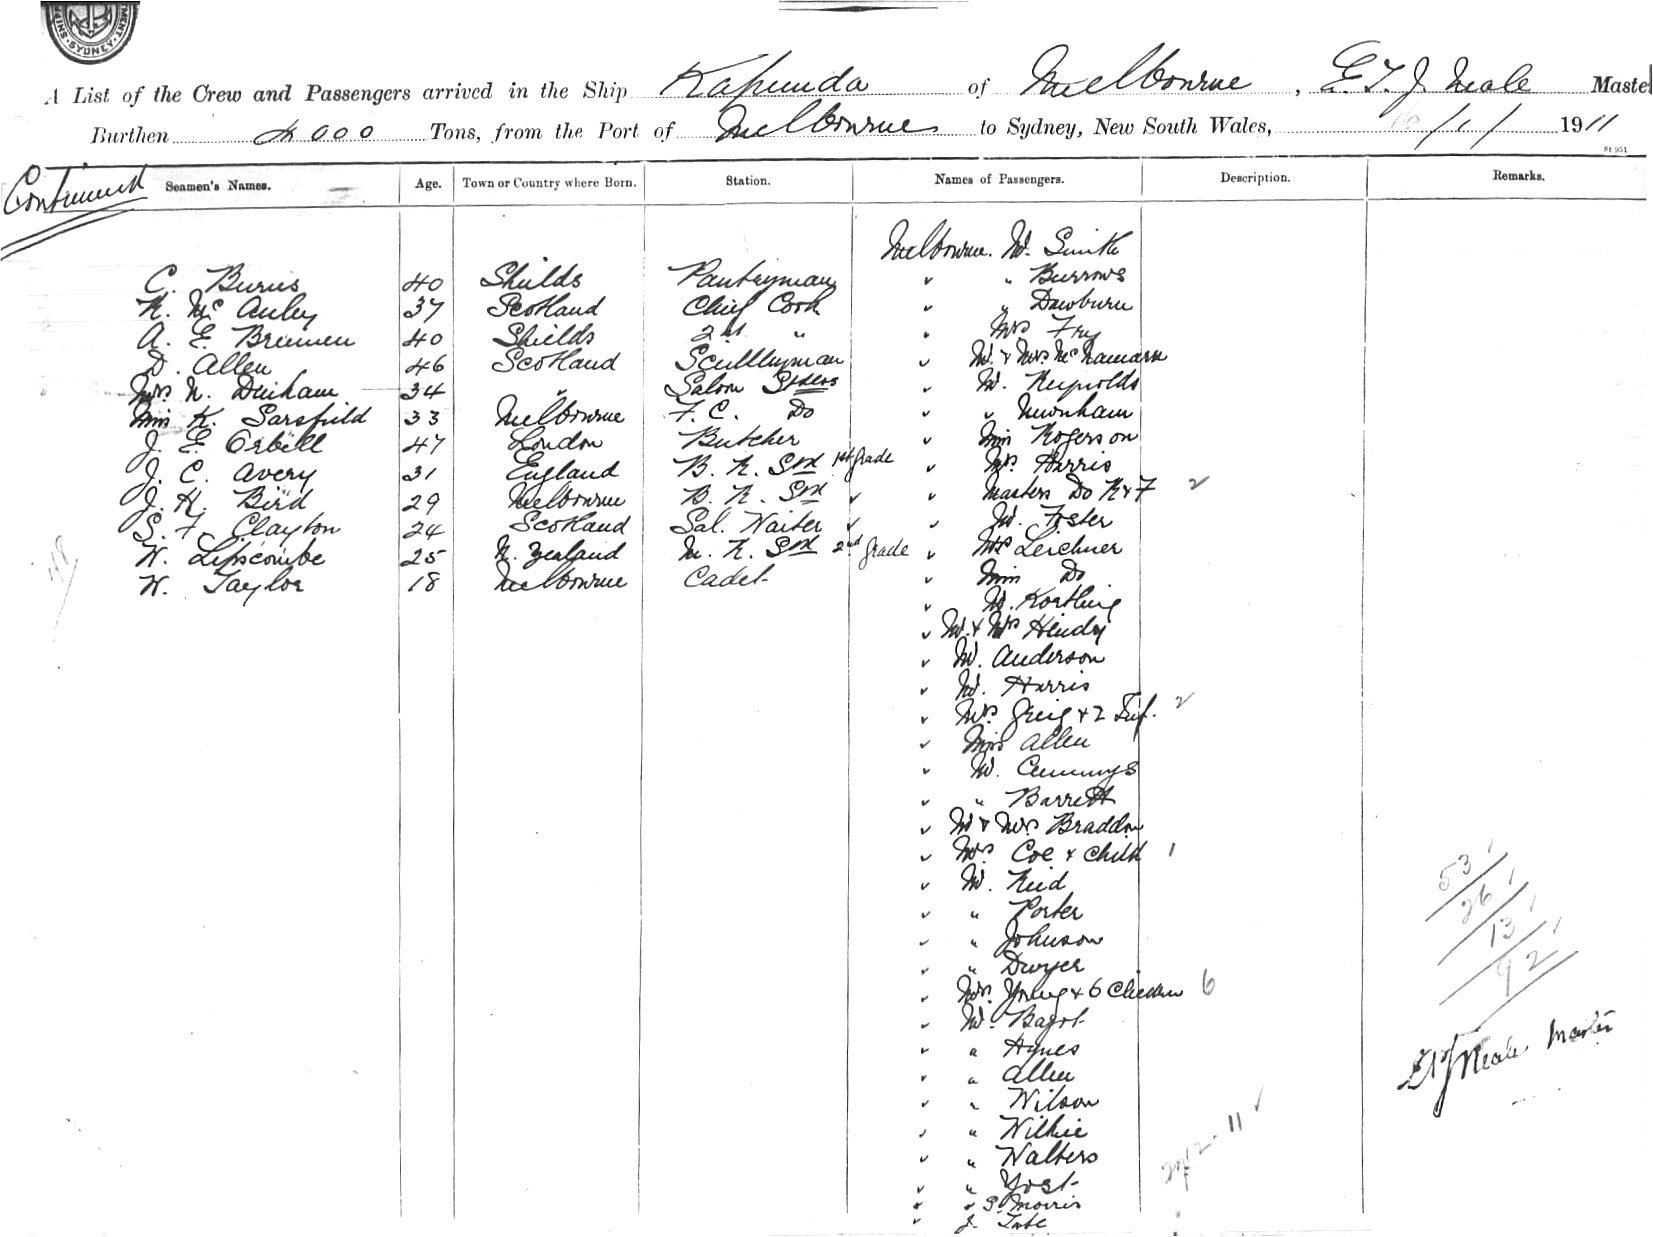 SYDNEY
A List of the Crew and Passengers arrived in the Ship Kapunda of Melbourne, E. T. J. Neale Maste
Burthen 4000 Tons, from the Port of Melbourne to Sydney, New South Wales, 16/1/ 1911
St 951
Continued Seamen's Names. Age. Town or Country where Born. Station. Names of Passengers. Description. Remarks.
Melbourne. Mr. Smith
C. Burns 40 Shields Pantryman " Burrows
R. McAuley 37 Scotland Chief Cook " Dawburn
A. E. Brennen 40 Shields 2nd " Mrs Fry
D. Allen 46 Scotland Scullryman Mr. & Mrs McNamara
Mrs N. Denham 34 " Saloon Stdess Mr. Reynolds
Miss K. Sarsfield 33 Melbourne F. C. Do " Newnham
J. E. Orbell 47 London Butcher Miss Rogerson
J. C. Avery 31 England B. R. Std 1st grade Mrs. Harris
J. K. Bird 29 Melbourne B. R. Std Masters Do R & F 2
S. F. Clayton 24 Scotland Sal. Waiter Mr. Foster
W. Lipscombe 25 N. Zealand M. R. Std 2nd grade Mrs Leichner
W. Taylor 18 Melbourne Cadet Miss Do
Mr. Koerthing
Mr. & Mrs Hendy
Mr. Anderson
Mr. Harris
Mrs. Greig & 2 Inf. 2
Miss Allen
Mr. Cummings
" Barrett
Mr & Mrs Braddon
Mrs. Coe & Child 1
Mr. Reid
" Porter
" Johnson
" Dwyer
Mrs. Young & 6 Children 6
Mr. Bagot
" Hynes
" Allen
" Wilson
" Wilkie
" Walters
" Yost
" S. Morris
J. Tate
53
26
13
92
E T J Neale Master